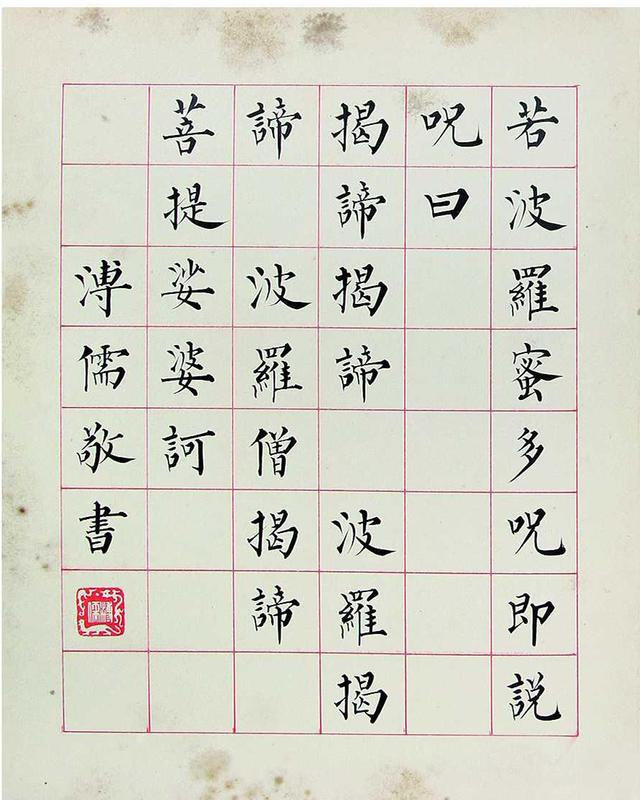 若波羅蜜多呪即説
呪曰
揭諦揭諦 波羅揭
諦 波羅僧揭諦
菩提娑婆訶
溥儒敬書